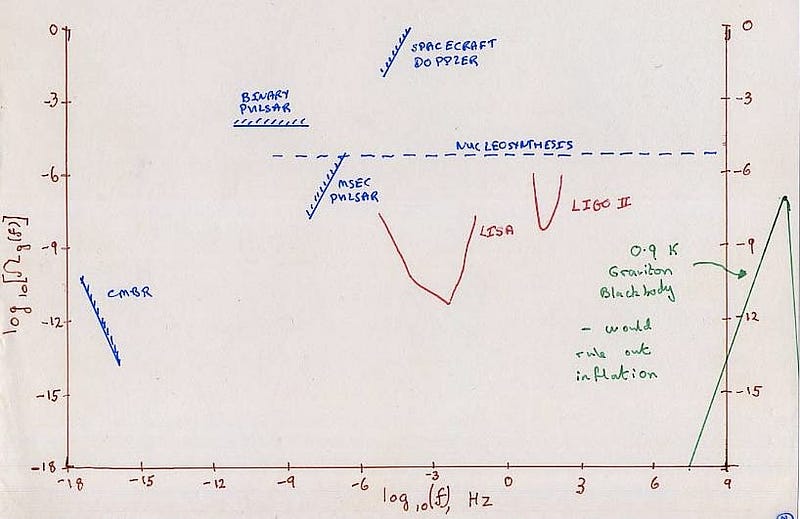 0
0
SPACECRAFT
DOPPZER
-3
BINARY
PULSAR
-3
NUCLEOSYNTHESIS
-6
MSEC
PULSAR
-6
LISA
LIGO II
-9
0.9 K
Graviton
Blackbody
-9
log10[Ωg(f)]
CMBR
-12
- would
rule out
inflation
-12
-15
-15
-18
-18
-15
-12
-9
-6
-3
0
3
6
9
log10(f), Hz